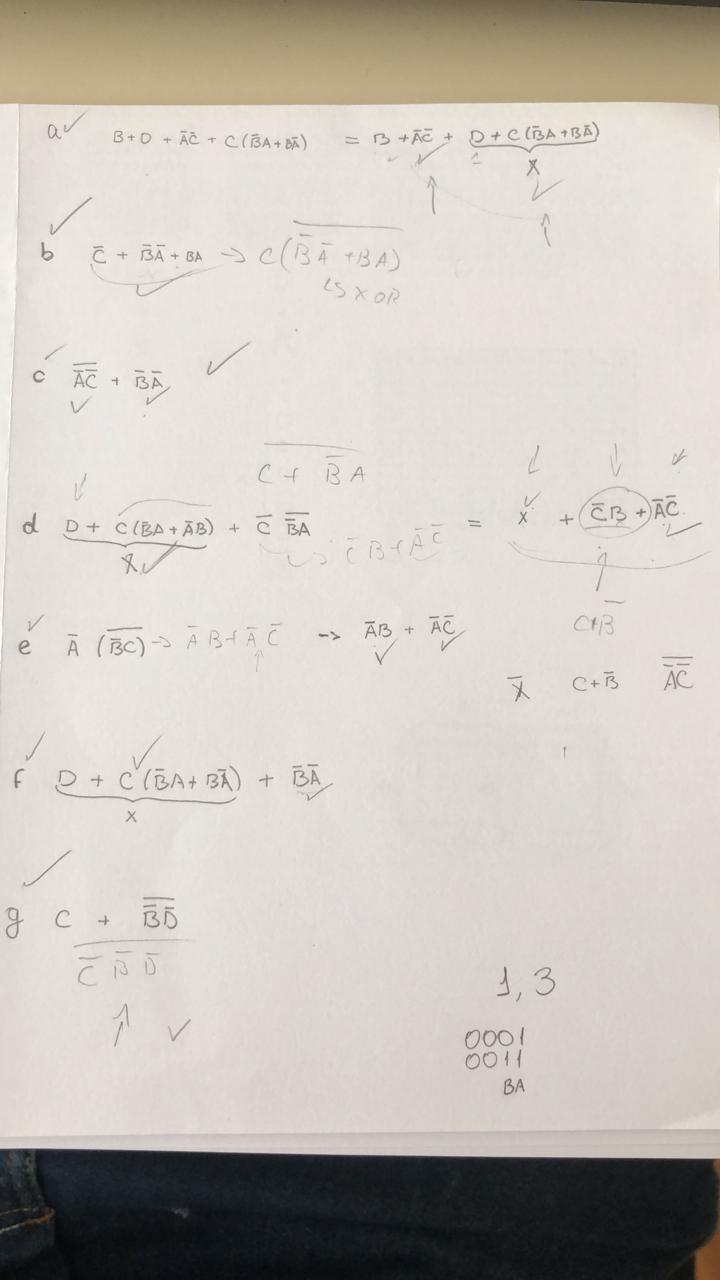 a✓ B+D + A̅C̅ + C(B̅A+BA̅) = B + A̅C̅ + D + C(B̅A+BA̅)
X
b C̅ + B̅A̅ + BA → C(B̅A̅ + BA)
↳ XOR
c A̅C̅ + B̅A̅
C + B̅A
d D + C(B̅A + A̅B) + C̅ B̅A = X + C̅B + A̅C̅
X C̅B + A̅C̅
C+B̅
e A̅ (B̅C) → A̅B + A̅C̅ → A̅B + A̅C̅
X̅ C+B̅ A̅C̅
f D + C(B̅A + BA̅) + B̅A̅
X
g C + B̅D̅
C̅ B̅ D̅
1,3
0001
0011
BA